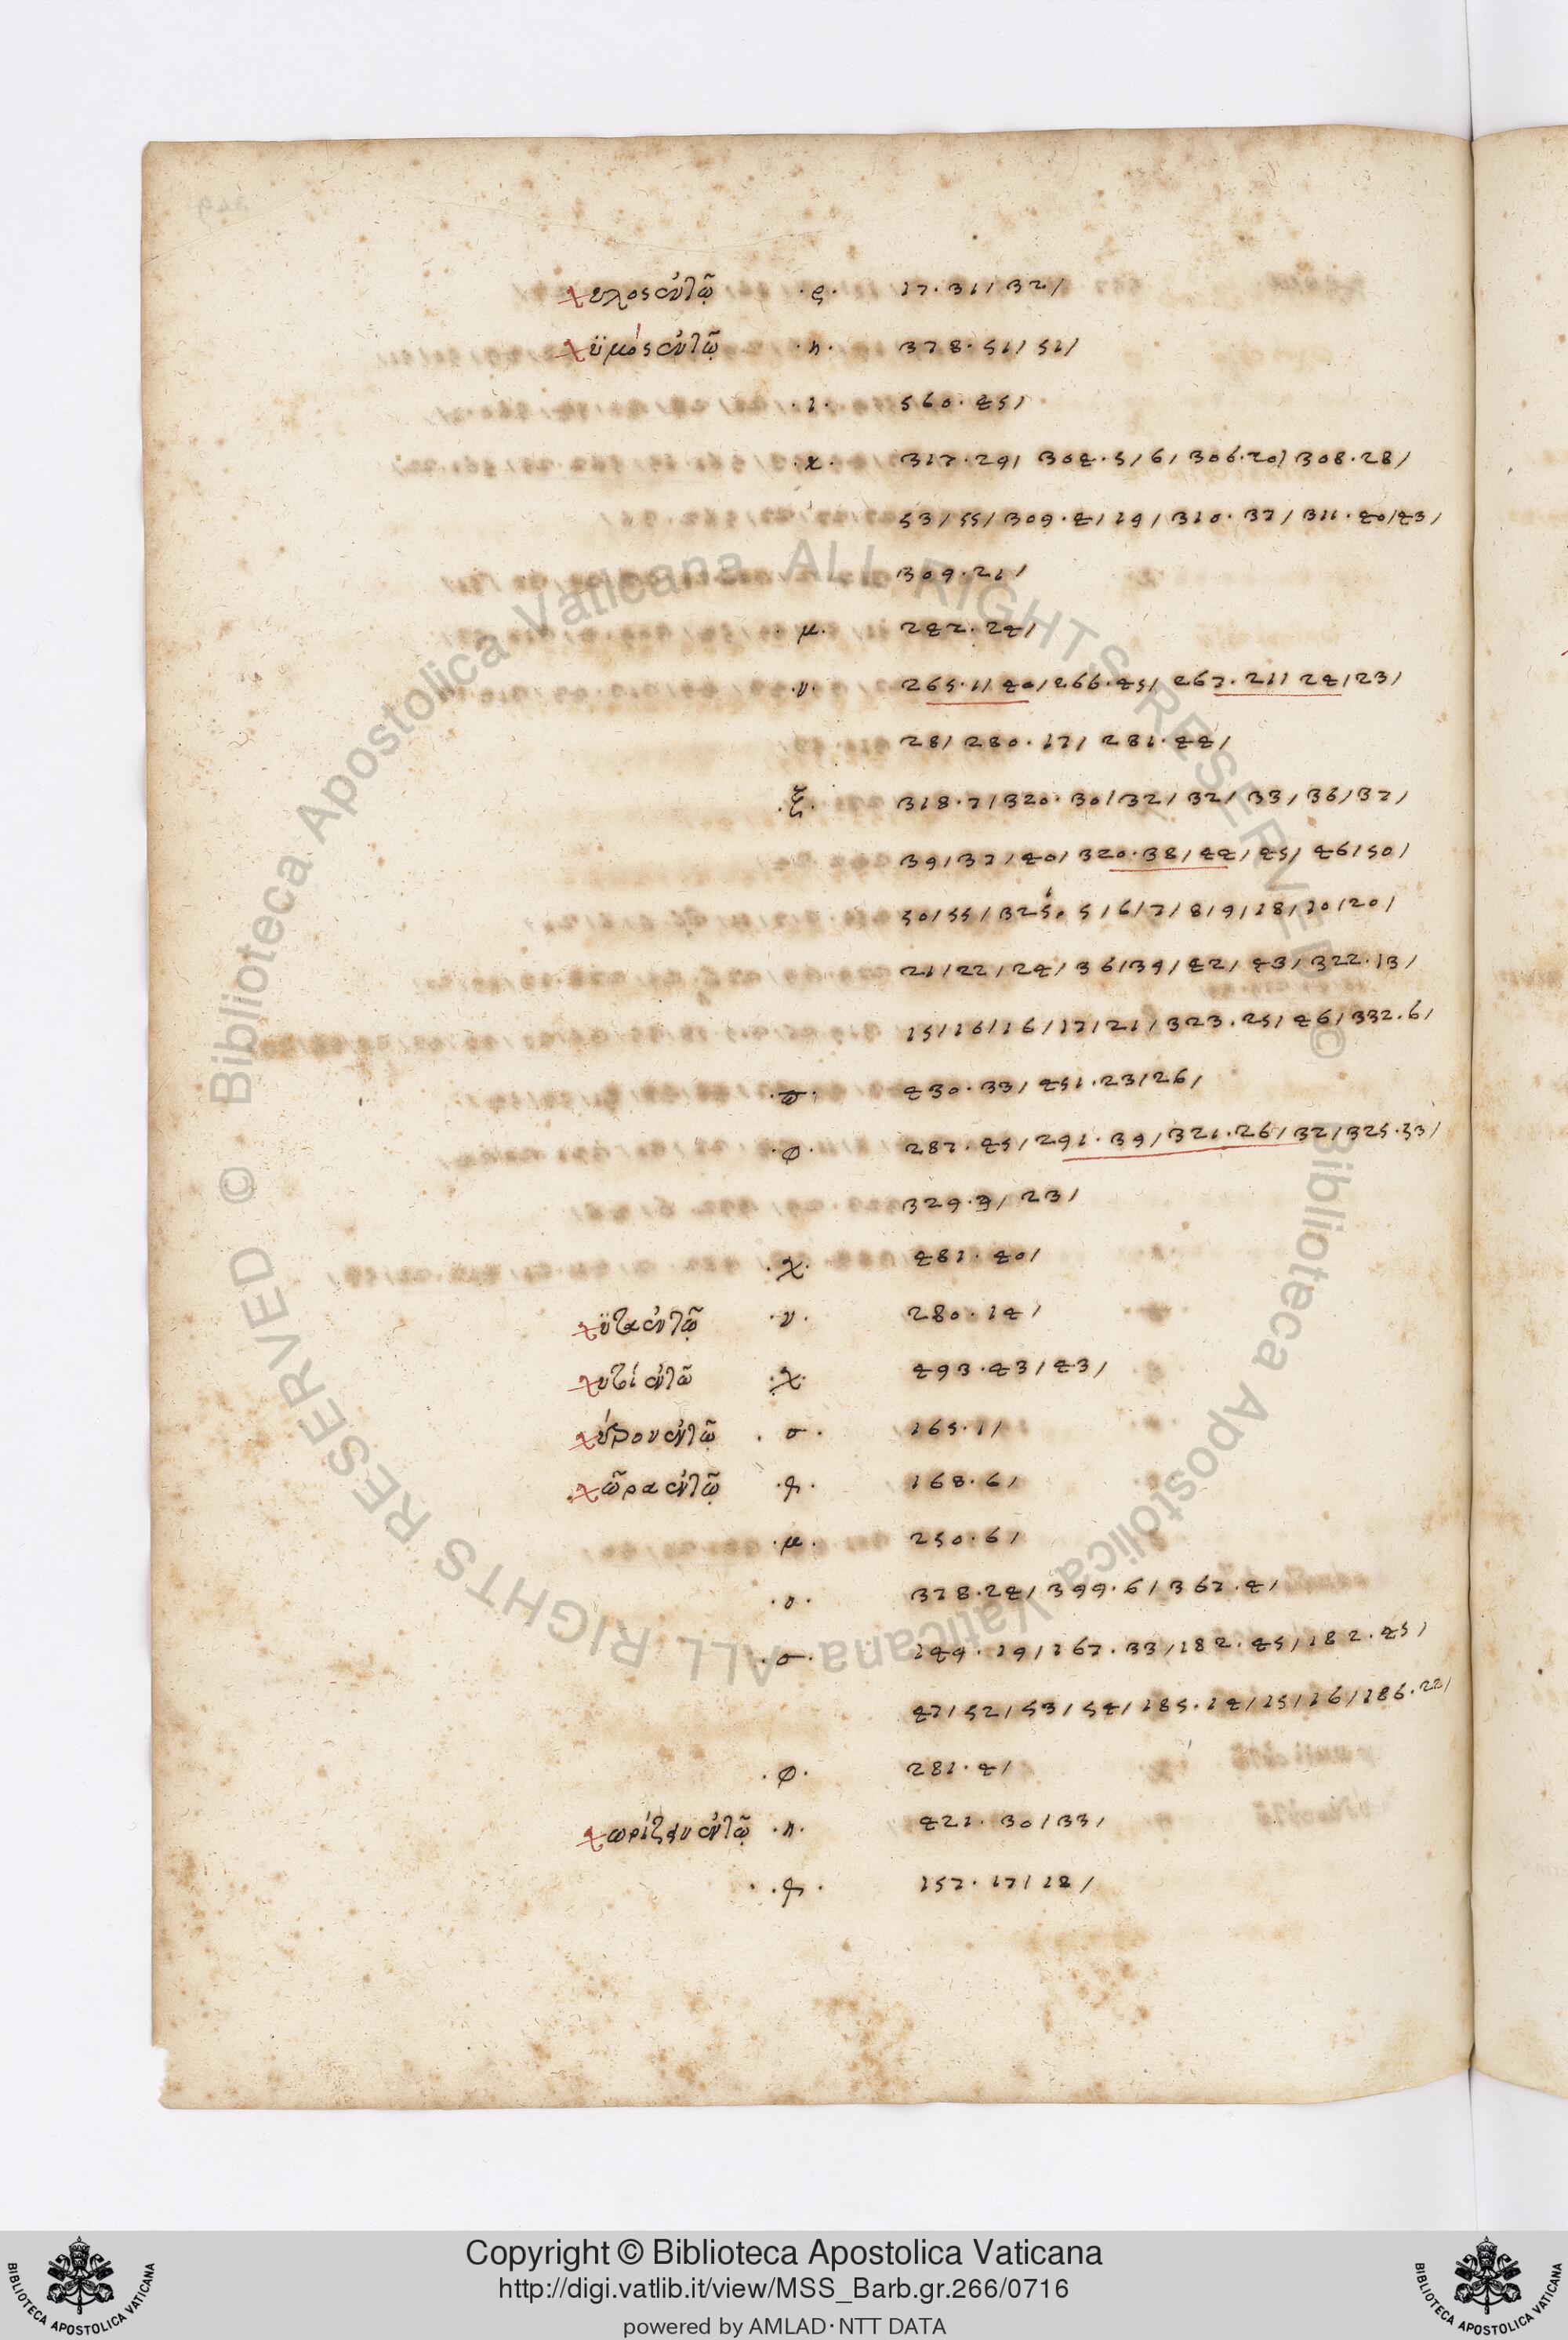 χυλος ἐν τῷ ·ς· 17·31/32/
χϋμός ἐν τῷ ·η· 378·51/51/
·ι· 560·45/
·κ· 317·29/304·5/6/306·20/308·28/
53/55/309·4/19/310·37/311·40/43/
309·21/
·μ· 242·24/
·ν· 265·1/40/266·45/267·21/24/23/
28/280·17/281·44/
·ξ· 318·7/320·30/32/32/33/36/37/
39/37/40/320·38/44/45/46/50/
50/55/325· 5/6/7/8/9/18/10/20/
21/22/24/36/39/42/43/322·13/
15/16/16/17/21/323·25/46/332·6/
·π· 430·33/451·23/26/
·φ· 287·45/291·39/321·26/32/325·33/
329·3/23/
·χ· 481·40/
χϋτα ἐν τῷ ·ν· 280·14/
χυτὶ ἐν τῶ ·χ· 493·43/43/
χύτρον ἐν τῷ ·σ· 165·1/
χῶρα ἐν τῷ 168·6/
·μ· 250·6/
·ο· 378·24/399·6/367·4/
·σ· 149·19/167·33/182·45/182·45/
47/52/53/54/185·14/15/16/186·22/
·φ· 281·4/
χωρίζειν ἐν τῷ ·η· 421·30/33/
157·17/18/
Copyright © Biblioteca Apostolica Vaticana
http://digi.vatlib.it/view/MSS_Barb.gr.266/0716
powered by AMLAD·NTT DATA
© Biblioteca Apostolica Vaticana ALL RIGHTS RESERVED
© Biblioteca Apostolica Vaticana ALL RIGHTS RESERVED
BIBLIOTECA APOSTOLICA VATICANA
BIBLIOTECA APOSTOLICA VATICANA